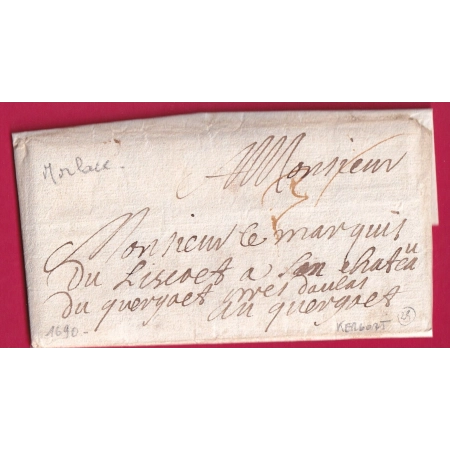 Morlaix.
A Monsieur
3
Monsieur le marquis
Du Liscoet a son chateau
du quergoet pres daulas
au quergoet
1690 -
KERGOET
28